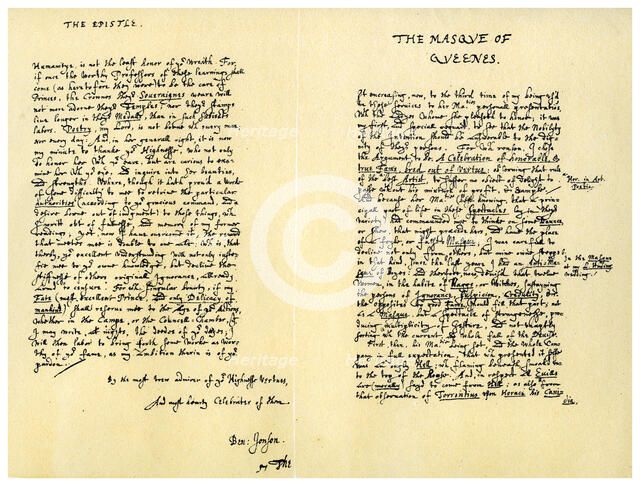 THE EPISTLE.
Humanitye, is not the least honor of yor Wreath. For,
if once the Worthy Professors of these learnings shall
come (as heretofore they were) to be the care of
Princes, the Crownes theyr Soveraignes weare will
not more adorne theyr Temples; nor theyr stamps
live longer in theyr Medalls, than in such subiects
labors. Poetry, my Lord, is not borne wth every man;
Nor every day: And, in her generall right, it is now
my minute to thanke yor Highnesse, who not only
do honor her wth yor care, but are curious to exa-
mine her wth yor eye, and inquire into her beauties,
and strengths. Where, though it hath prov'd a Worke
of some difficulty to mee to retrive the particular
authorities (according to yor gracious command, and a
desire borne out of iudgment) to those things, wch
I writt out of fullnesse, and memory of my former
readings; yet, now I have overcome it, the reward
that meetes mee is double to one act: wch is, that
therby, yor excellent Understanding will not only iusti-
fie mee to yor owne knowledge, but decline the
stiffnesse of others originall Ignorance, allready
arm'd to censure. For wch singular bounty, if my
Fate (most excellent Prince, and only Delicacy of
mankind) shall reserve mee to the Age of yor Actions,
whether in the Campe, or the Councell-Chamber, yt
I may write, at nights, the deedes of yor dayes;
I will then labor to bring forth some Worke as wor-
thy of yor fame, as my ambition therin is of yor
pardon.
By the most trew admirer of yor Highnesse Vertues,
And most hearty Celebrater of them.
Ben: Jonson.
The
THE MASQUE OF
QUEENES.
It encreasing, now, to the third time of my being us'd
in these services to her Maties personall presentations,
wth the Ladyes whome she pleaseth to honor; it was
my first, and speciall reguard, to see that the Nobility
of the Invention should be answerable to the dig-
nity of theyr persons. For wch reason, I chose
the Argument, to be, A Celebration of honorable, &
true Fame, bred out of Vertue: observing that rule
of the best Artist, to suffer no obiect of delight to
passe without his mixture of profit, & example.
Hor. in Art.
Poetic.
And because her Matie (best knowing, that a prin-
cipall part of life in these Spectacles lay in theyr
variety) had commaunded mee to think on some Daunce,
or shew, that might præcede hers, and have the place
of a foyle, or false-Masque; I was carefull to
decline not only from others, but mine owne stepps
in that kind, since the last yeare I had an Anti-Mas-
que of Boyes: and therefore, now, devis'd that twelve
In the Masque
at my L. Hading.
wedding.
Women, in the habite of Haggs, or Witches, sustayning
the persons of Ignorance, Suspicion, Credulity, &c.
the opposites to good Fame, should fill that part; not
as a Masque, but a spectacle of strangenesse, pro-
ducing multiplicity of Gesture, and not unaptly
sorting wth the current, and whole fall of the Devise.
First, then, his Matie being set, and the whole Com-
pany in full expectation, that wch presented it selfe
was an ougly Hell; wch flaming beneath, smoakd unto
the top of the Roofe. And, in respect all Evills
are (morally) sayd to come from Hell; as also from
that observation of Torrentius upon Horace his Cani-
dia,